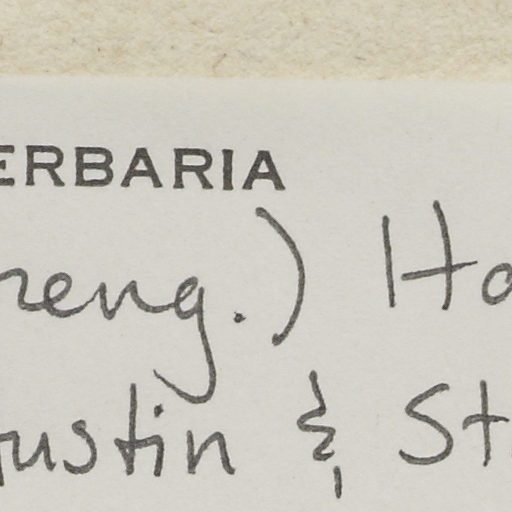 ERBARIA
reng.) Ha
ustin & St